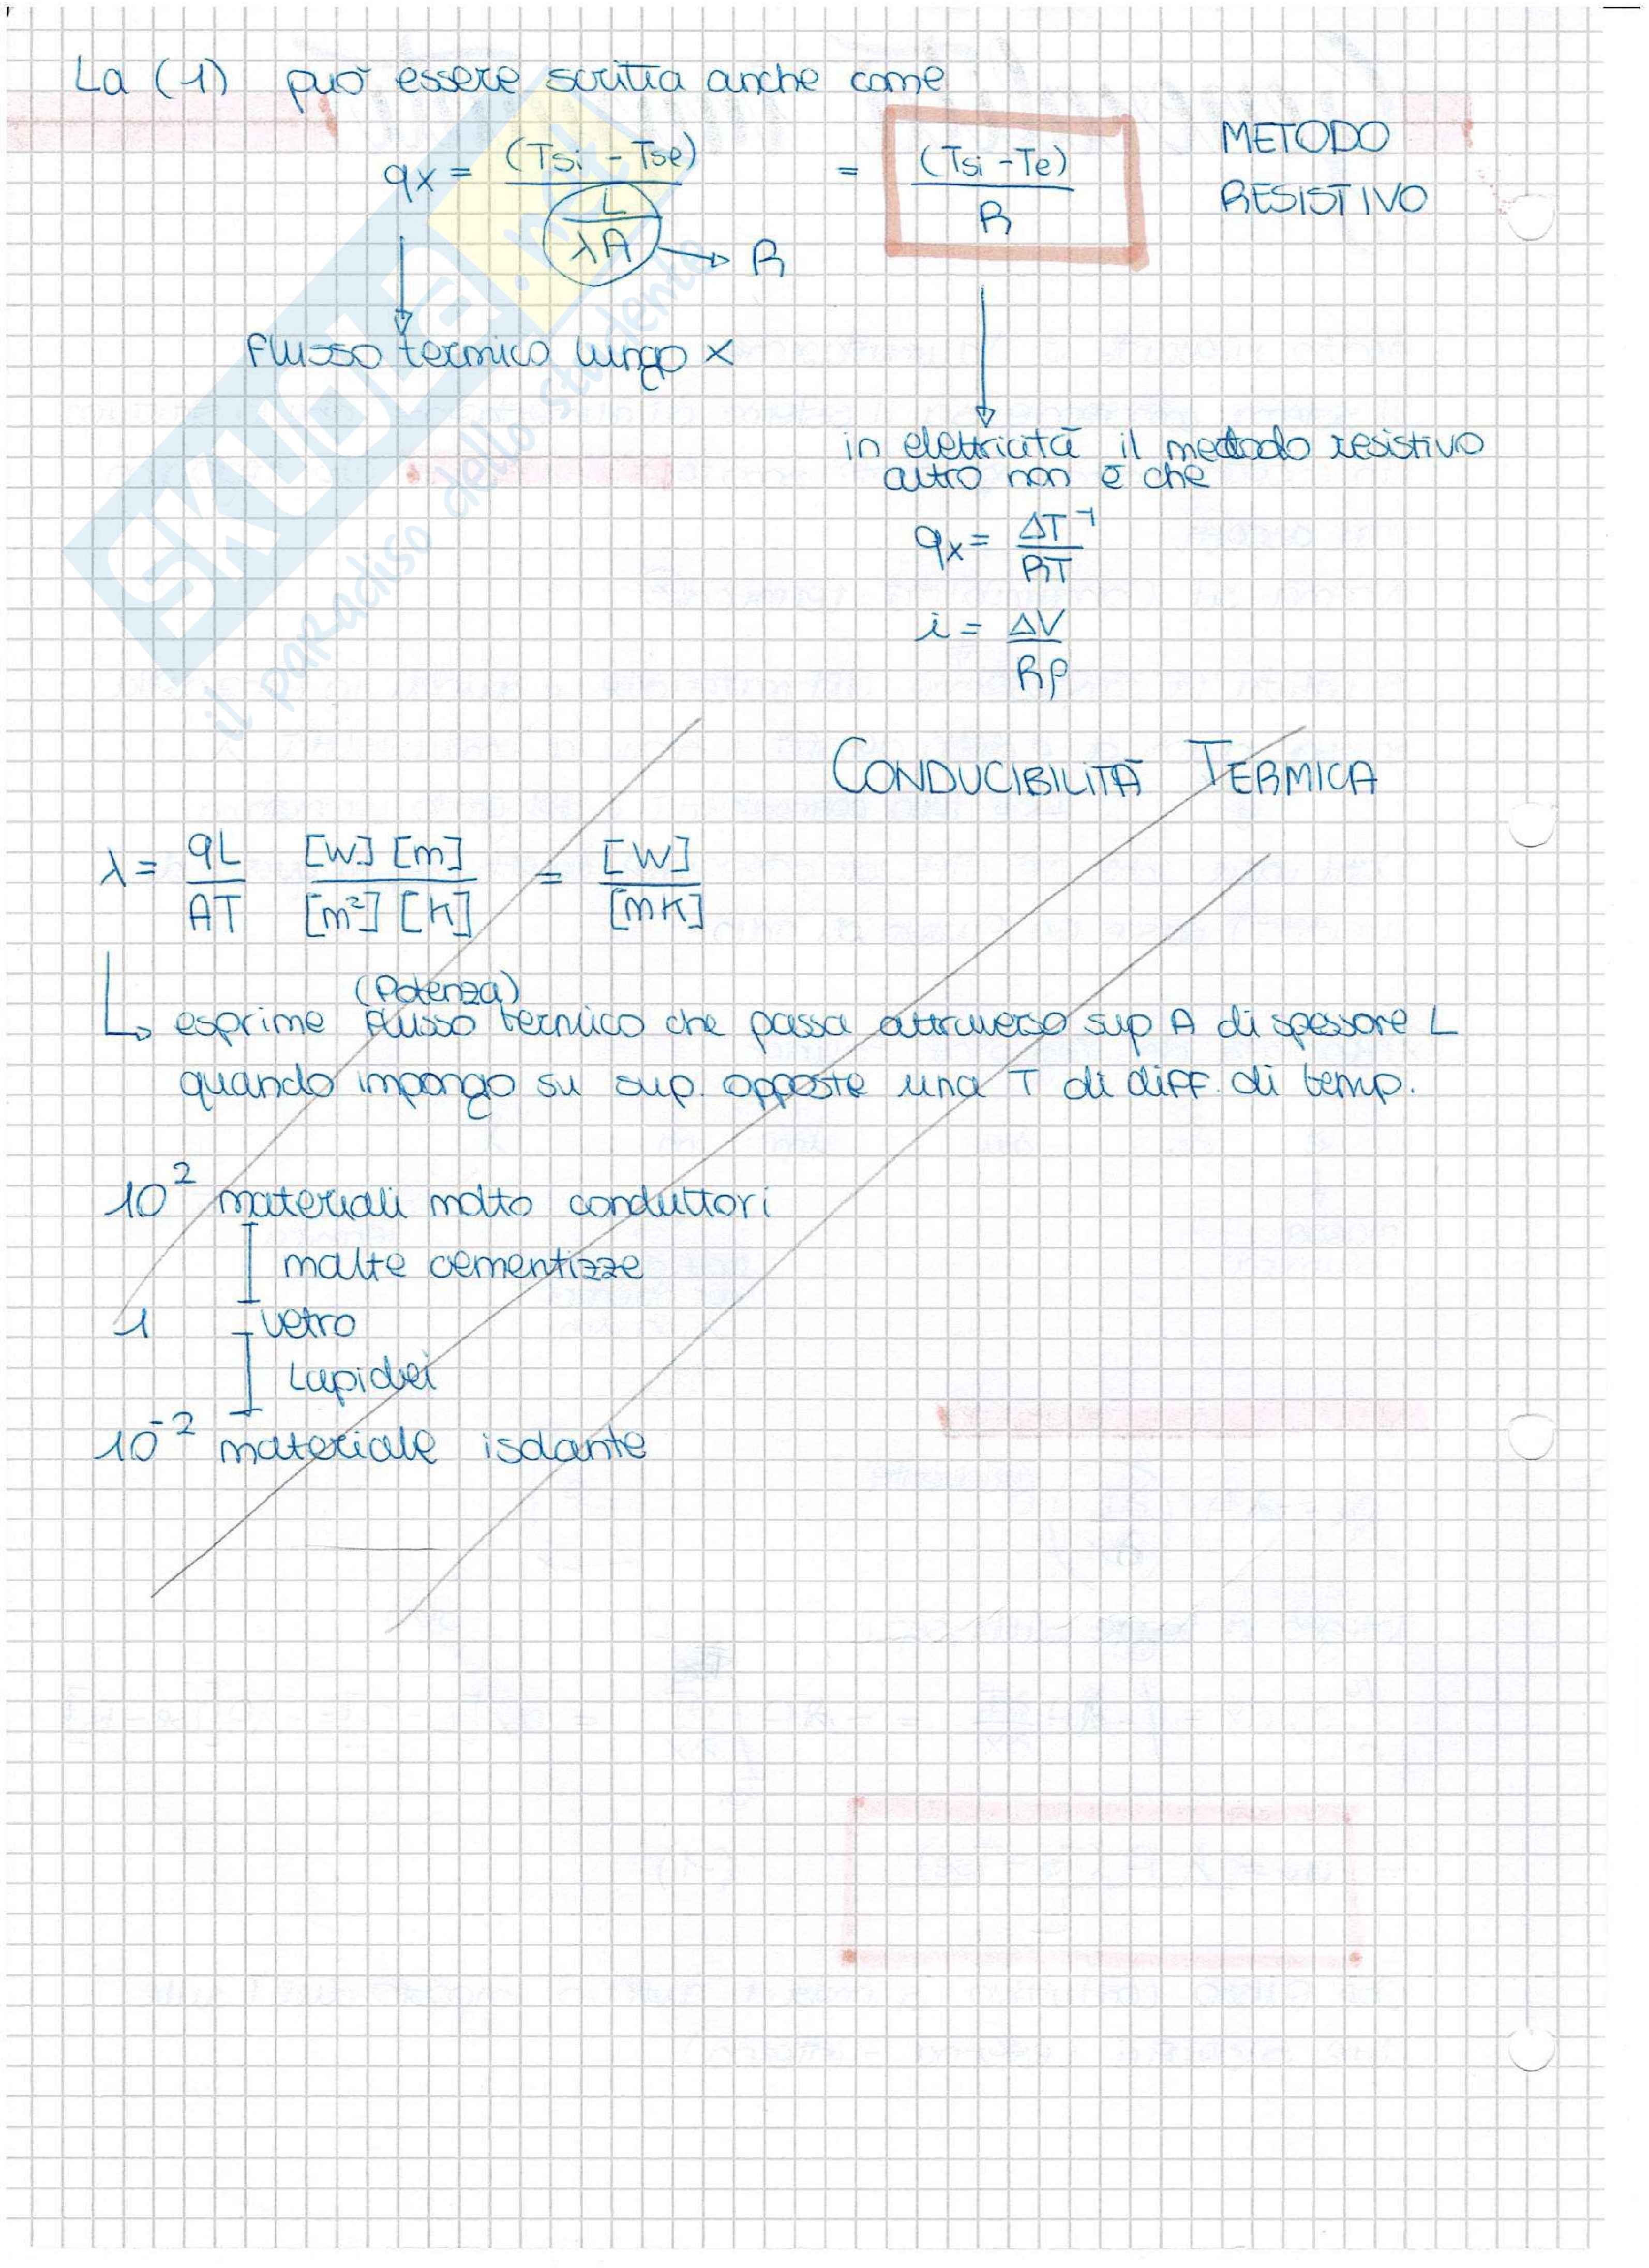 La (1) può essere scritta anche come
qx = (Tsi - Tse) / (L / λA) = (Tsi - Te) / R METODO RESISTIVO
→ R
flusso termico lungo x
in elettricità il metodo resistivo
altro non è che
qx = ΔT⁻¹ / RT
i = ΔV / Rρ
CONDUCIBILITÀ TERMICA
λ = qL / AT [W] [m] / [m²] [K] = [W] / [mK]
(Potenza)
↳ esprime flusso termico che passa attraverso sup A di spessore L
quando impongo su sup. opposte una T di diff. di temp.
10² materiali molto conduttori
malte cementizze
1 vetro
Lapidei
10⁻² materiale isolante
SKUOLA.net
il paradiso dello studente